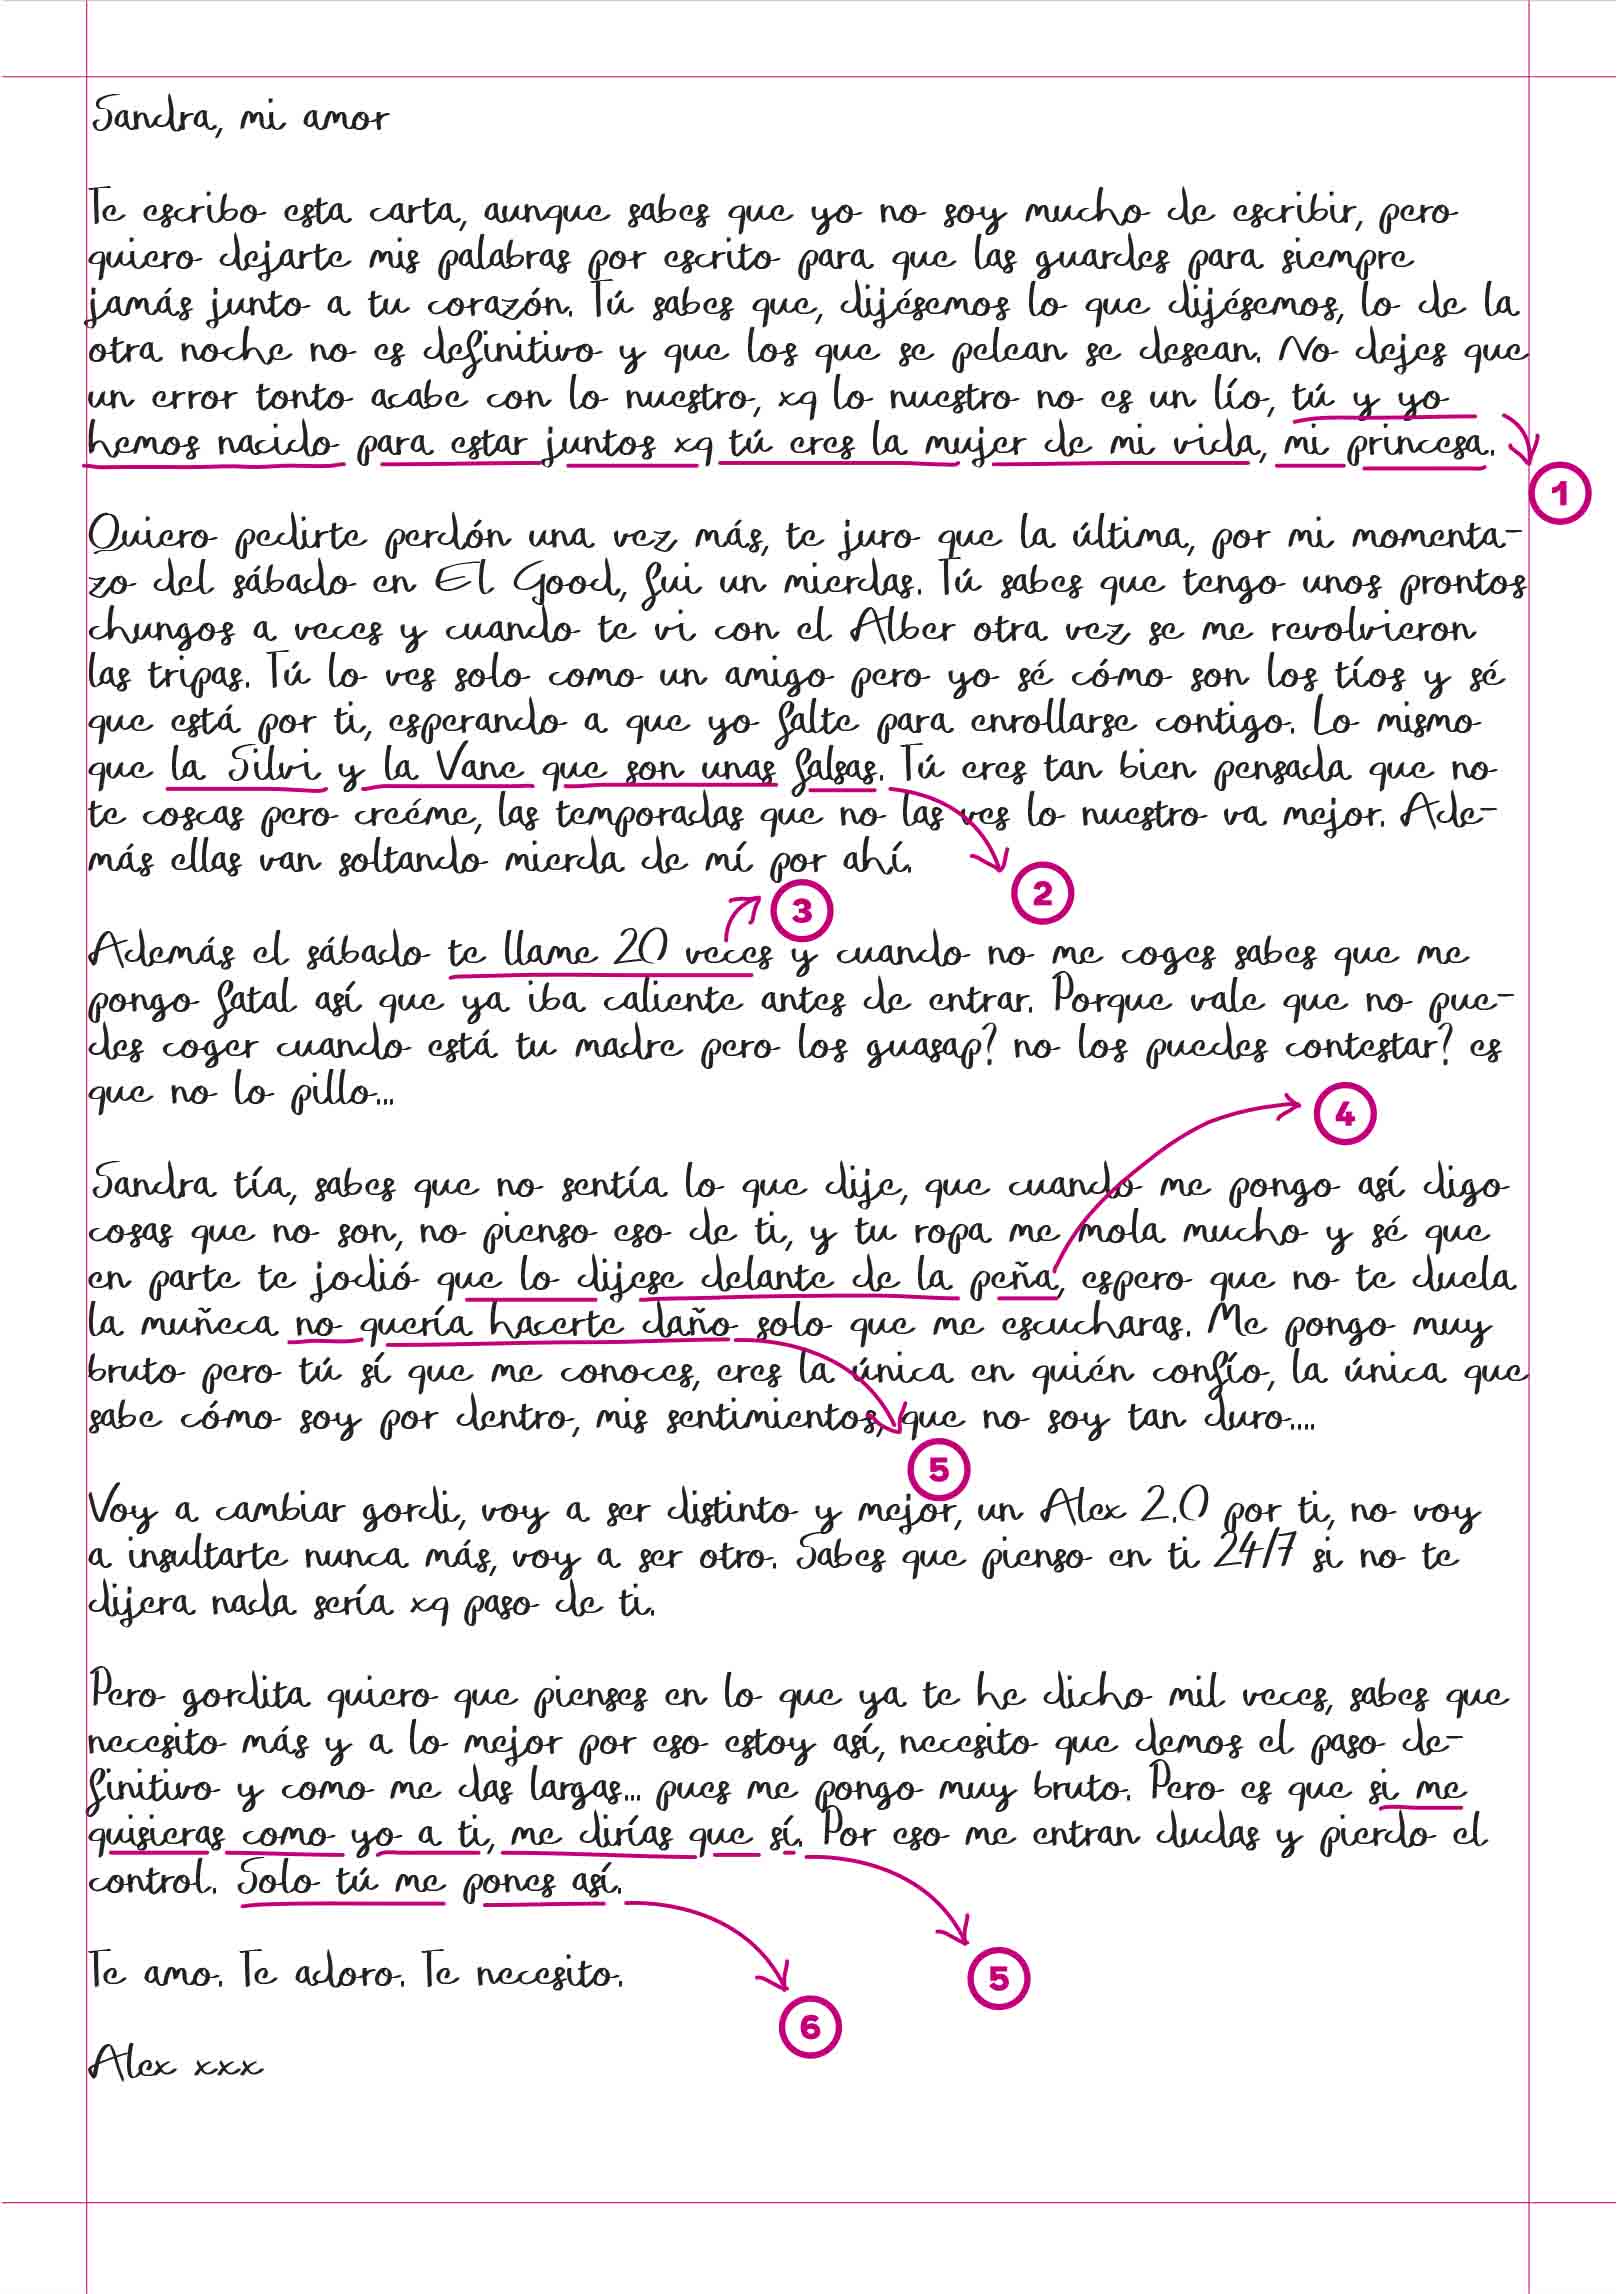 Sandra, mi amor
Te escribo esta carta, aunque sabes que yo no soy mucho de escribir, pero
quiero dejarte mis palabras por escrito para que las guardes para siempre
jamás junto a tu corazón. Tú sabes que, dijésemos lo que dijésemos, lo de la
otra noche no es definitivo y que los que se pelean se desean. No dejes que
un error tonto acabe con lo nuestro, xq lo nuestro no es un lío, tú y yo
hemos nacido para estar juntos xq tú eres la mujer de mi vida, mi princesa.
1
Quiero pedirte perdón una vez más, te juro que la última, por mi momenta-
zo del sábado en El Good, fui un mierdas. Tú sabes que tengo unos prontos
chungos a veces y cuando te vi con el Alber otra vez se me revolvieron
las tripas. Tú lo ves solo como un amigo pero yo sé cómo son los tíos y sé
que está por ti, esperando a que yo falte para enrollarse contigo. Lo mismo
que la Silvi y la Vane que son unas falsas. Tú eres tan bien pensada que no
te coscas pero creéme, las temporadas que no las ves lo nuestro va mejor. Ade-
más ellas van soltando mierda de mí por ahí.
2
3
Además el sábado te llame 20 veces y cuando no me coges sabes que me
pongo fatal así que ya iba caliente antes de entrar. Porque vale que no pue-
des coger cuando está tu madre pero los guasap? no los puedes contestar? es
que no lo pillo...
4
Sandra tía, sabes que no sentía lo que dije, que cuando me pongo así digo
cosas que no son, no pienso eso de ti, y tu ropa me mola mucho y sé que
en parte te jodió que lo dijese delante de la peña, espero que no te duela
la muñeca no quería hacerte daño solo que me escucharas. Me pongo muy
bruto pero tú sí que me conoces, eres la única en quién confío, la única que
sabe cómo soy por dentro, mis sentimientos, que no soy tan duro....
5
Voy a cambiar gordi, voy a ser distinto y mejor, un Alex 2.0 por ti, no voy
a insultarte nunca más, voy a ser otro. Sabes que pienso en ti 24/7 si no te
dijera nada sería xq paso de ti.
Pero gordita quiero que pienses en lo que ya te he dicho mil veces, sabes que
necesito más y a lo mejor por eso estoy así, necesito que demos el paso de-
finitivo y como me das largas... pues me pongo muy bruto. Pero es que si me
quisieras como yo a ti, me dirías que sí. Por eso me entran dudas y pierdo el
control. Solo tú me pones así.
Te amo. Te adoro. Te necesito.
5
6
Alex xxx